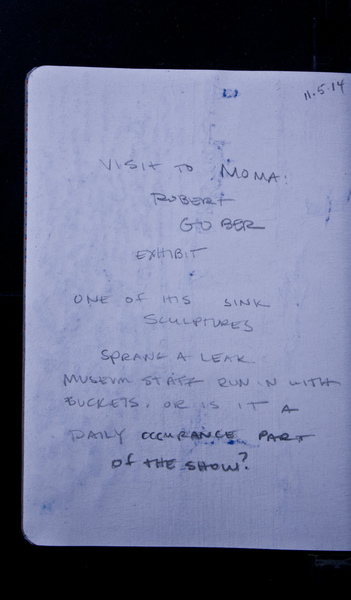 11.5.14
VISIT TO MOMA:
ROBERT
GOBER
EXHIBIT
ONE OF HIS SINK
SCULPTURES
SPRANG A LEAK
MUSEUM STAFF RUN IN WITH
BUCKETS. OR IS IT A
DAILY OCCURANCE PART
OF THE SHOW?